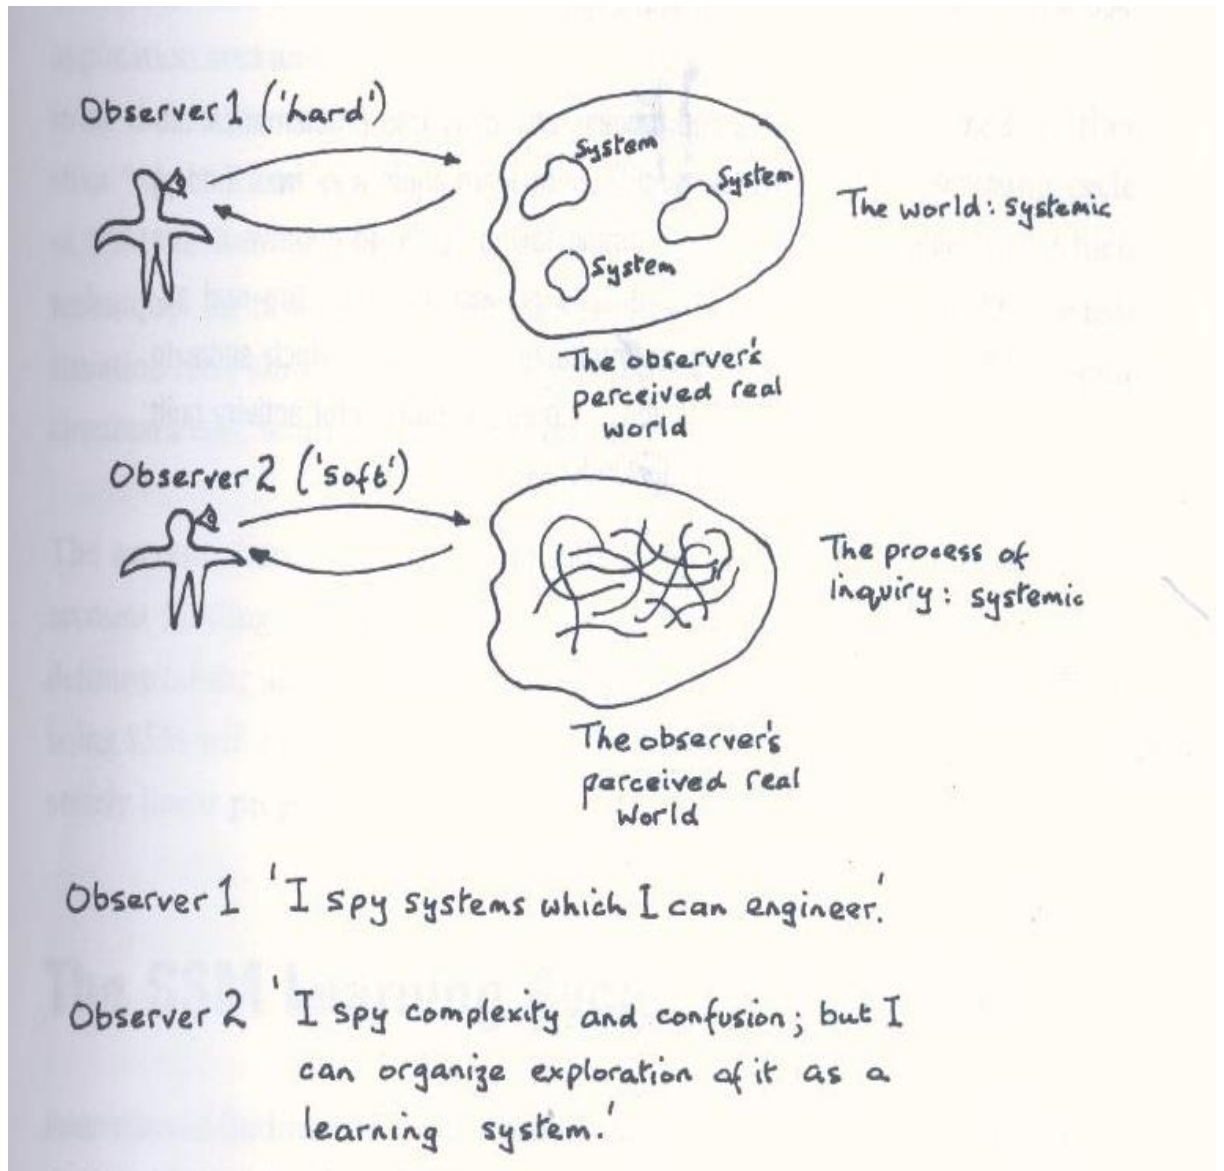 Observer 1 ('hard')
System
System
System
The world: systemic
The observer's
perceived real
world
Observer 2 ('soft')
The process of
inquiry: systemic
The observer's
perceived real
world
Observer 1 'I spy systems which I can engineer.'
Observer 2 'I spy complexity and confusion; but I
can organize exploration of it as a
learning system.'
The SSM Learning